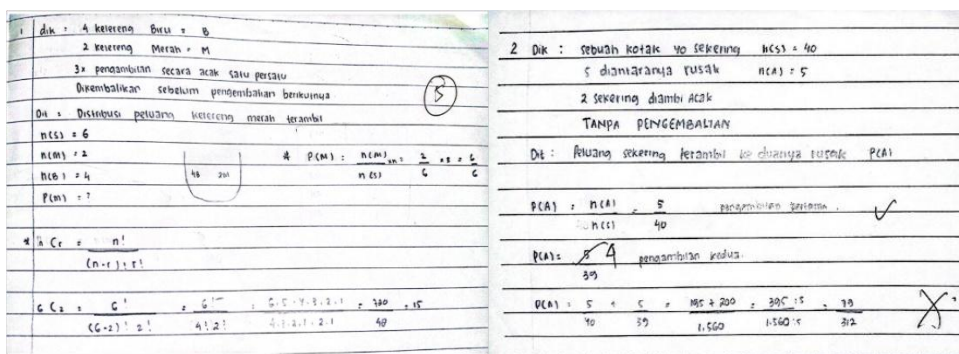 1 dik : 4 kelereng Biru = B
2 kelereng Merah = M
3x pengambilan secara acak satu persatu
Dikembalikan sebelum pengembalian berikutnya
5
Dit : Distribusi peluang kelereng merah terambil
n(s) = 6
n(m) = 2
n(B) = 4
P(m) = ?
4B 2M
* P(M) : n(M)/n(s) xn = 2/6 x3 = 6/6
* n Cr = n!/(n-r)! r!
6 C2 = 6!/(6-2)! 2! = 6!/4! 2! = 6.5.4.3.2.1/4.3.2.1.2.1 = 720/48 = 15
2 Dik : Sebuah kotak 40 sekering n(s) = 40
5 diantaranya rusak n(A) = 5
2 sekering diambi Acak
TANPA PENGEMBALIAN
Dit : Peluang sekering terambil ke duanya rusak P(A)
P(A) = n(A)/n(s) = 5/40 pengambilan pertama.
P(A) = 5 4/39 pengambilan kedua.
P(A) = 5/40 + 5/39 = 195 + 200/1.560 = 395 :5/1.560 :5 = 79/312